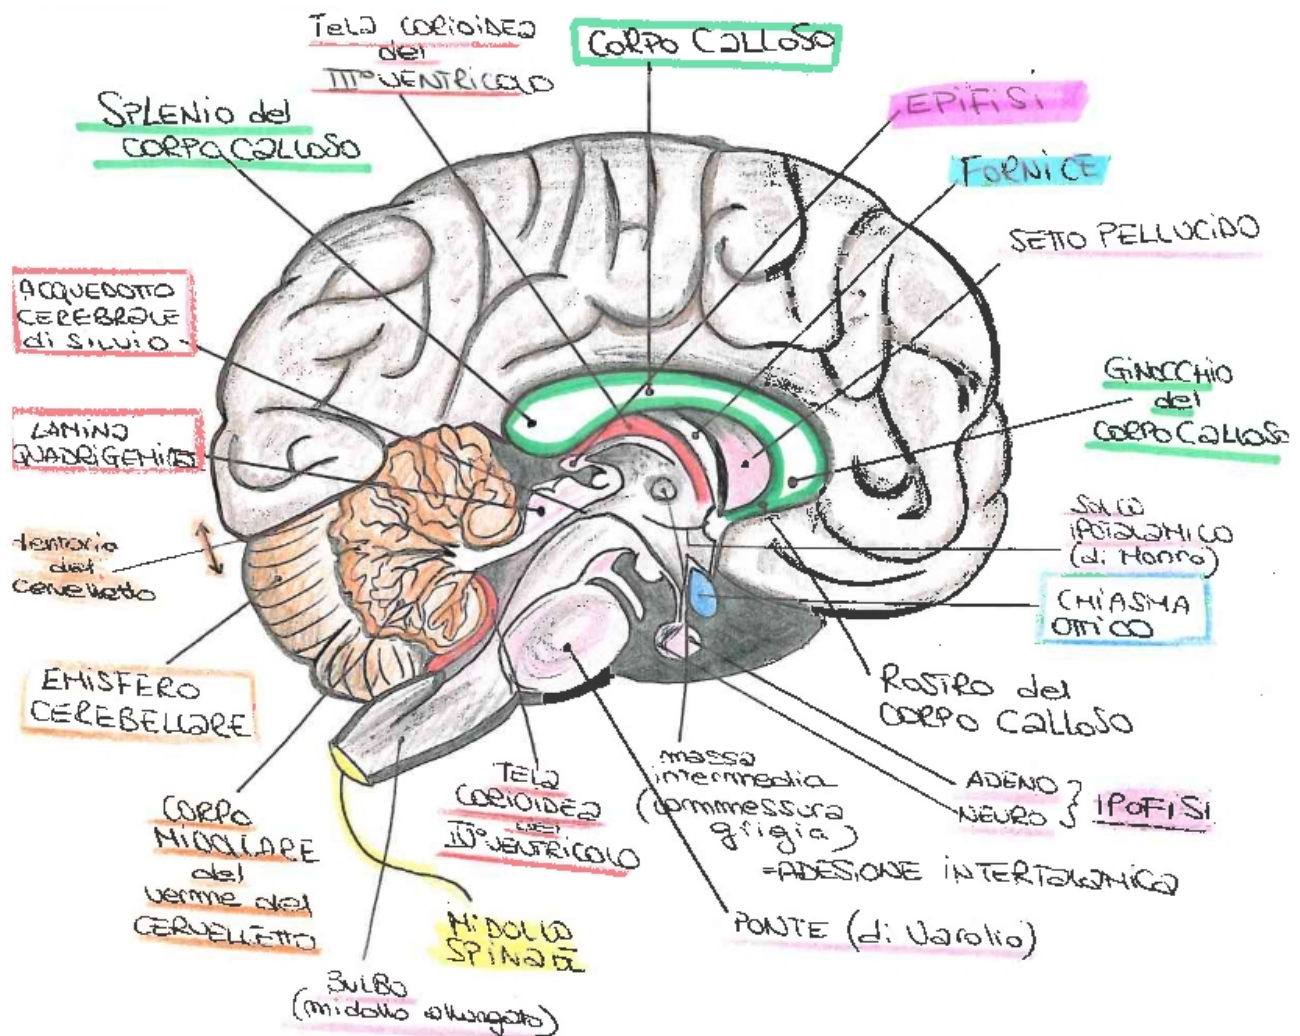 TELA CORIOIDEA
del
III° VENTRICOLO
CORPO CALLOSO
SPLENIO del
CORPO CALLOSO
EPIFISI
FORNICE
SETTO PELLUCIDO
ACQUEDOTTO
CEREBRALE
di SILVIO
GINOCCHIO
del
CORPO CALLOSO
LAMINA
QUADRIGEMINA
SOLCO
IPOTALAMICO
(di Monro)
tentorio
del
cervelletto
CHIASMA
OTTICO
EMISFERO
CEREBELLARE
ROSTRO del
CORPO CALLOSO
massa
intermedia
(commessura
grigia)
=ADESIONE INTERTALAMICA
ADENO
NEURO
IPOFISI
CORPO
MIDOLLARE
del
verme del
CERVELLETTO
TELA
CORIOIDEA
del
IV° VENTRICOLO
MIDOLLO
SPINALE
PONTE (di Varolio)
BULBO
(midollo allungato)